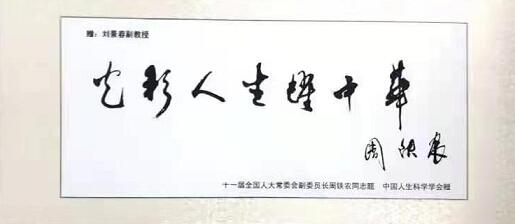 赠：刘景春副教授
光彩人生耀中华
周铁农
十一届全国人大常委会副委员长周铁农同志题 中国人生科学学会赠